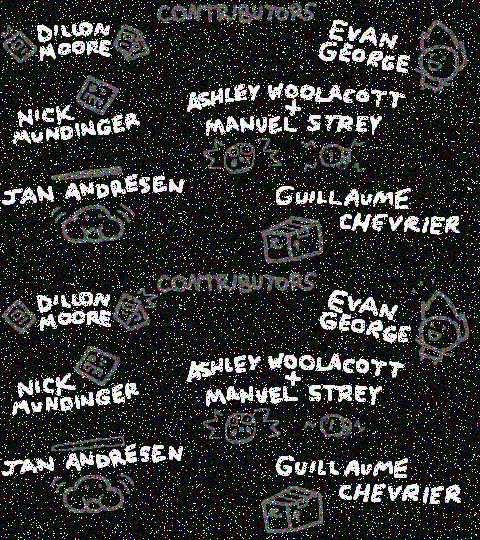 CONTRIBUTORS
DILLON
MOORE
EVAN
GEORGE
NICK
MUNDINGER
ASHLEY WOOLACOTT
+
MANUEL STREY
JAN ANDRESEN
GUILLAUME
CHEVRIER
CONTRIBUTORS
DILLON
MOORE
EVAN
GEORGE
NICK
MUNDINGER
ASHLEY WOOLACOTT
+
MANUEL STREY
JAN ANDRESEN
GUILLAUME
CHEVRIER